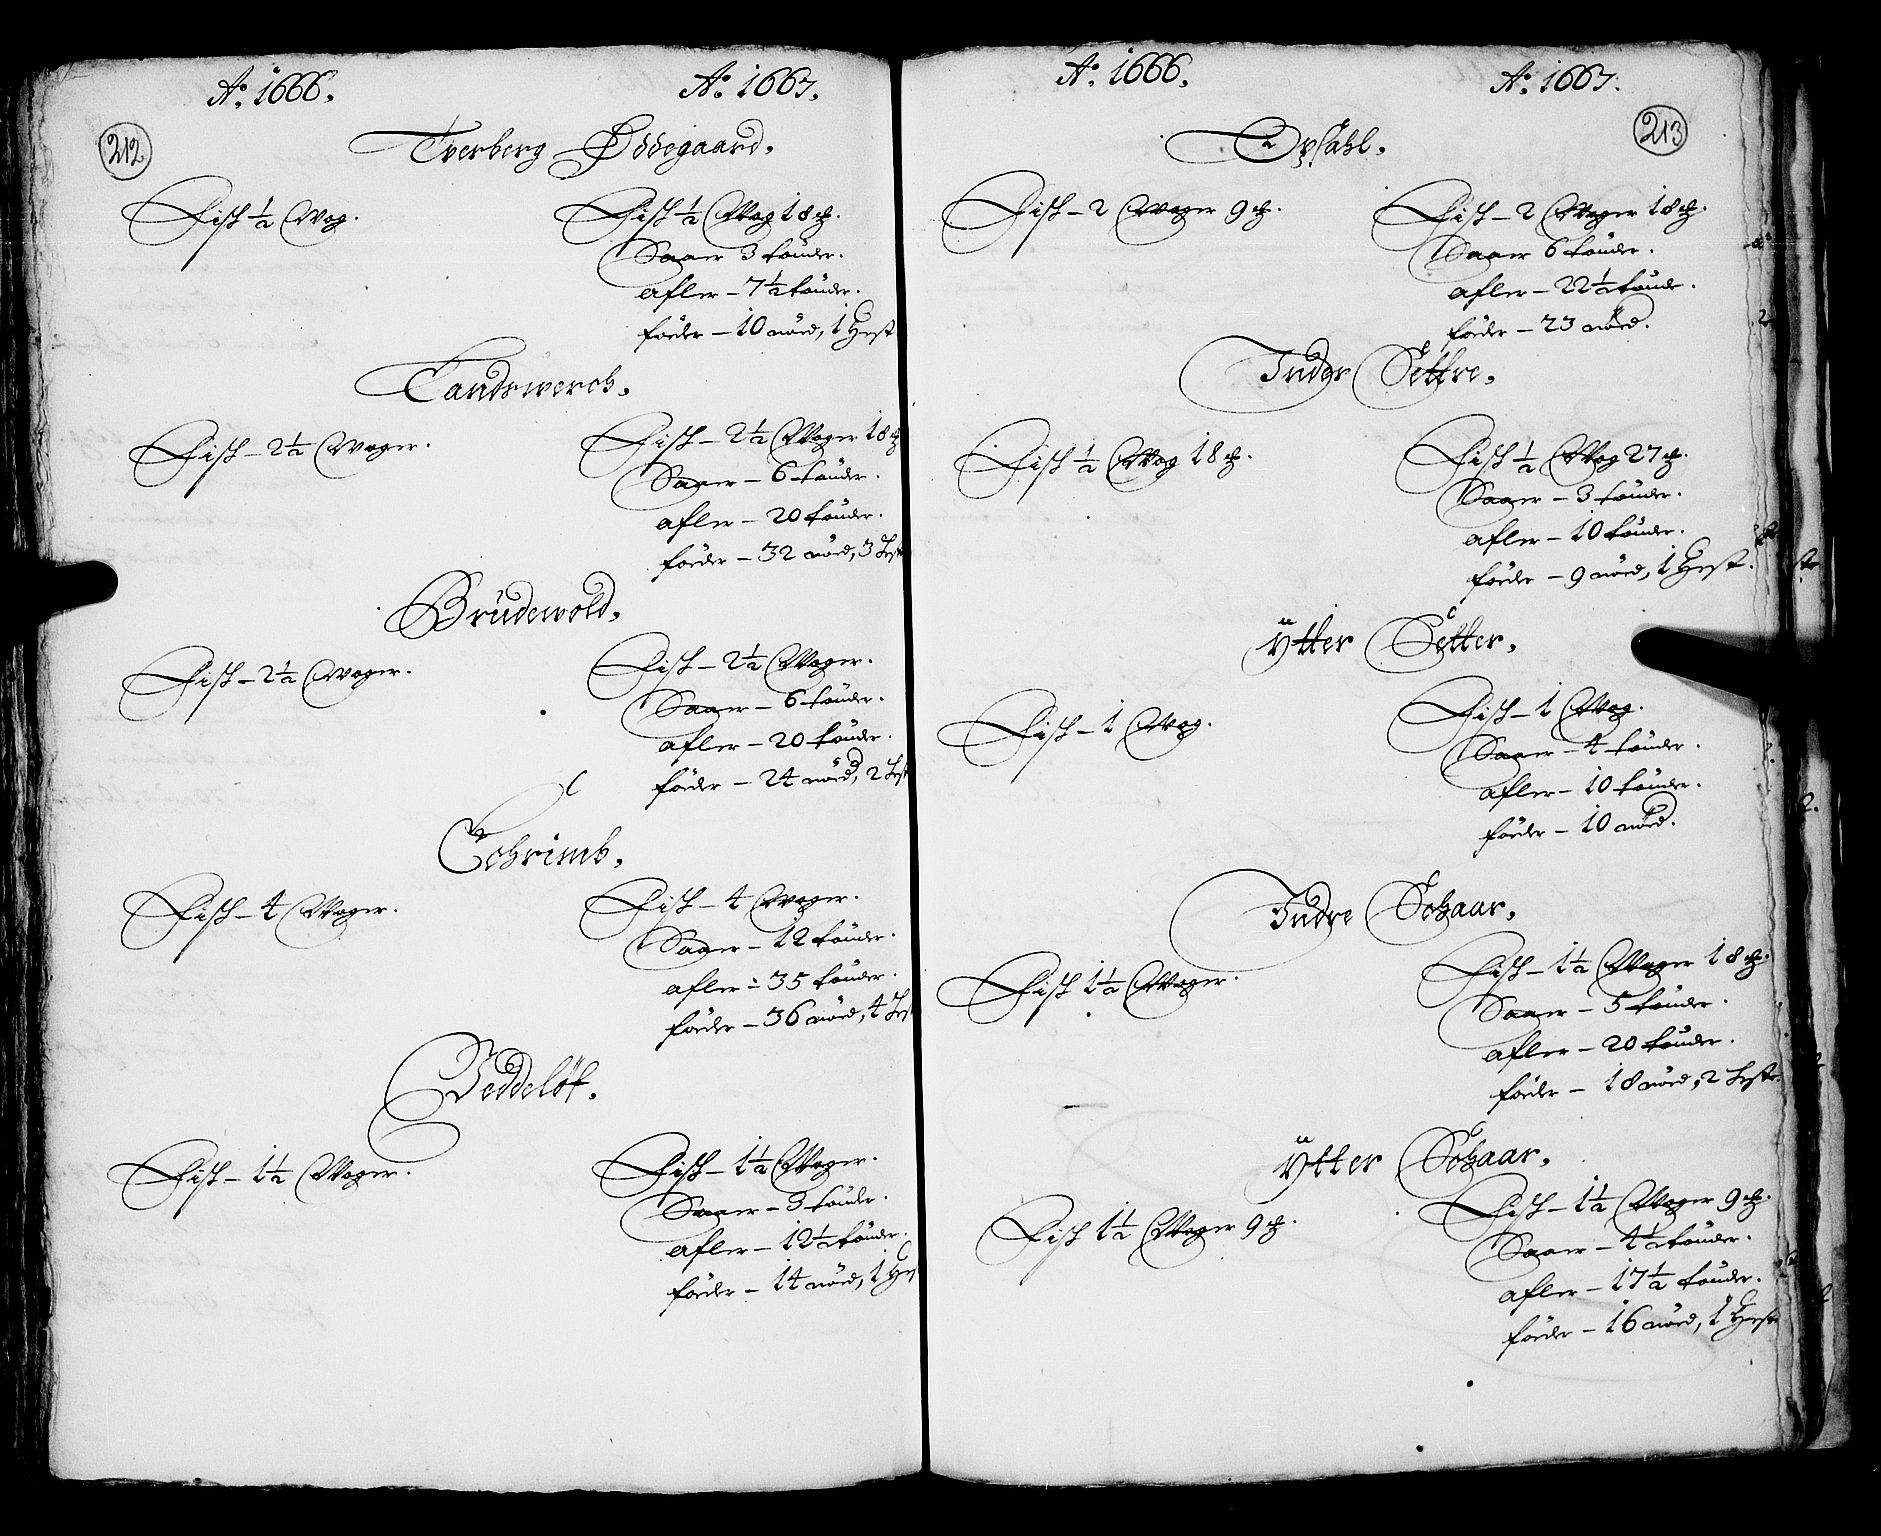 212
Aº. 1666. Aº. 1667.
Tverberg Ødegaard.
Fisk ½ Wog. Fisk ½ Wog 18 ℔.
Saaer 3 tönder.
afler – 7½ tönder.
föder – 10 nöed, 1 Hest
Tandrwerch.
Fisk – 2½ Woger. Fisk – 2½ Woger 18 ℔
Saaer – 6 tönder.
afler – 20 tönder.
föder – 32 nöed, 3 Hest
Brüdewold.
Fisk – 2½ Woger. Fisk – 2½ Woger.
Saaer – 6 tönder.
afler – 20 tönder.
föder – 24 nöed, 2 Hest
Schrimb.
Fisk – 4 Woger. Fisk – 4 Woger.
Saaer – 12 tönder.
afler – 35 tönder.
föder – 36 nöed, 4 Hest
Veddeløf.
Fisk – 1½ Woger. Fisk – 1½ Woger.
Saaer – 3 tönder.
afler – 12½ tönder.
föder – 14 nöed, 1 Hes
213
Aº. 1666. Aº. 1667.
Opsahl.
Fisk – 2 Woger 9 ℔. Fisk – 2 Woger 18 ℔.
Saaer 6 tönder.
afler – 22½ tönder.
föder – 23 nöed.
Inder Settre.
Fisk ½ Wog 18 ℔. Fisk ½ Wog 27 ℔.
Saaer – 3 tönder.
afler – 10 tönder.
föder – 9 nöed, 1 Hest.
Ytter Setter.
Fisk – 1 Wog. Fisk – 1 Wog.
Saaer – 4 tönder.
afler – 10 tönder.
föder – 10 nöed.
Indre Schaar.
Fisk 1½ Woger. Fisk – 1½ Woger 18 ℔.
Saaer – 5 tönder.
afler – 20 tönder.
föder – 18 nöed, 2 Heste.
Ytter Schaar.
Fisk 1½ Woger 9 ℔. Fisk – 1½ Woger 9 ℔.
Saaer – 4½ tönder.
afler – 17½ tönder.
föder – 16 nöed, 1 Hest